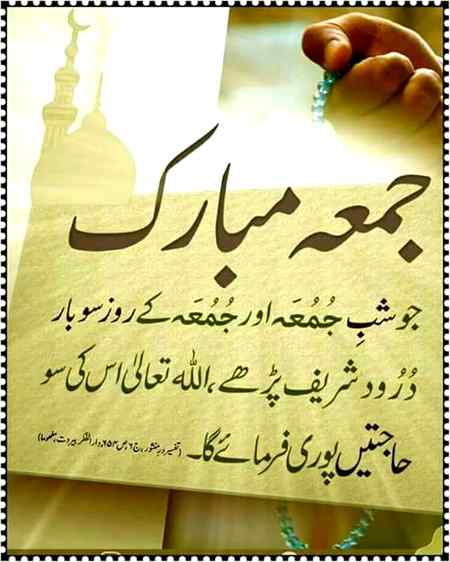 جمعہ مبارک
جو شبِ جُمُعَہ اور جُمُعَہ کے روز سو بار
دُرُود شریف پڑھے، اللہ تعالیٰ اس کی سو
حاجتیں پوری فرمائے گا۔ (تفسیر در منثور، ج۶، ص۶۵۴، دار الفکر بیروت، ملخوصا)